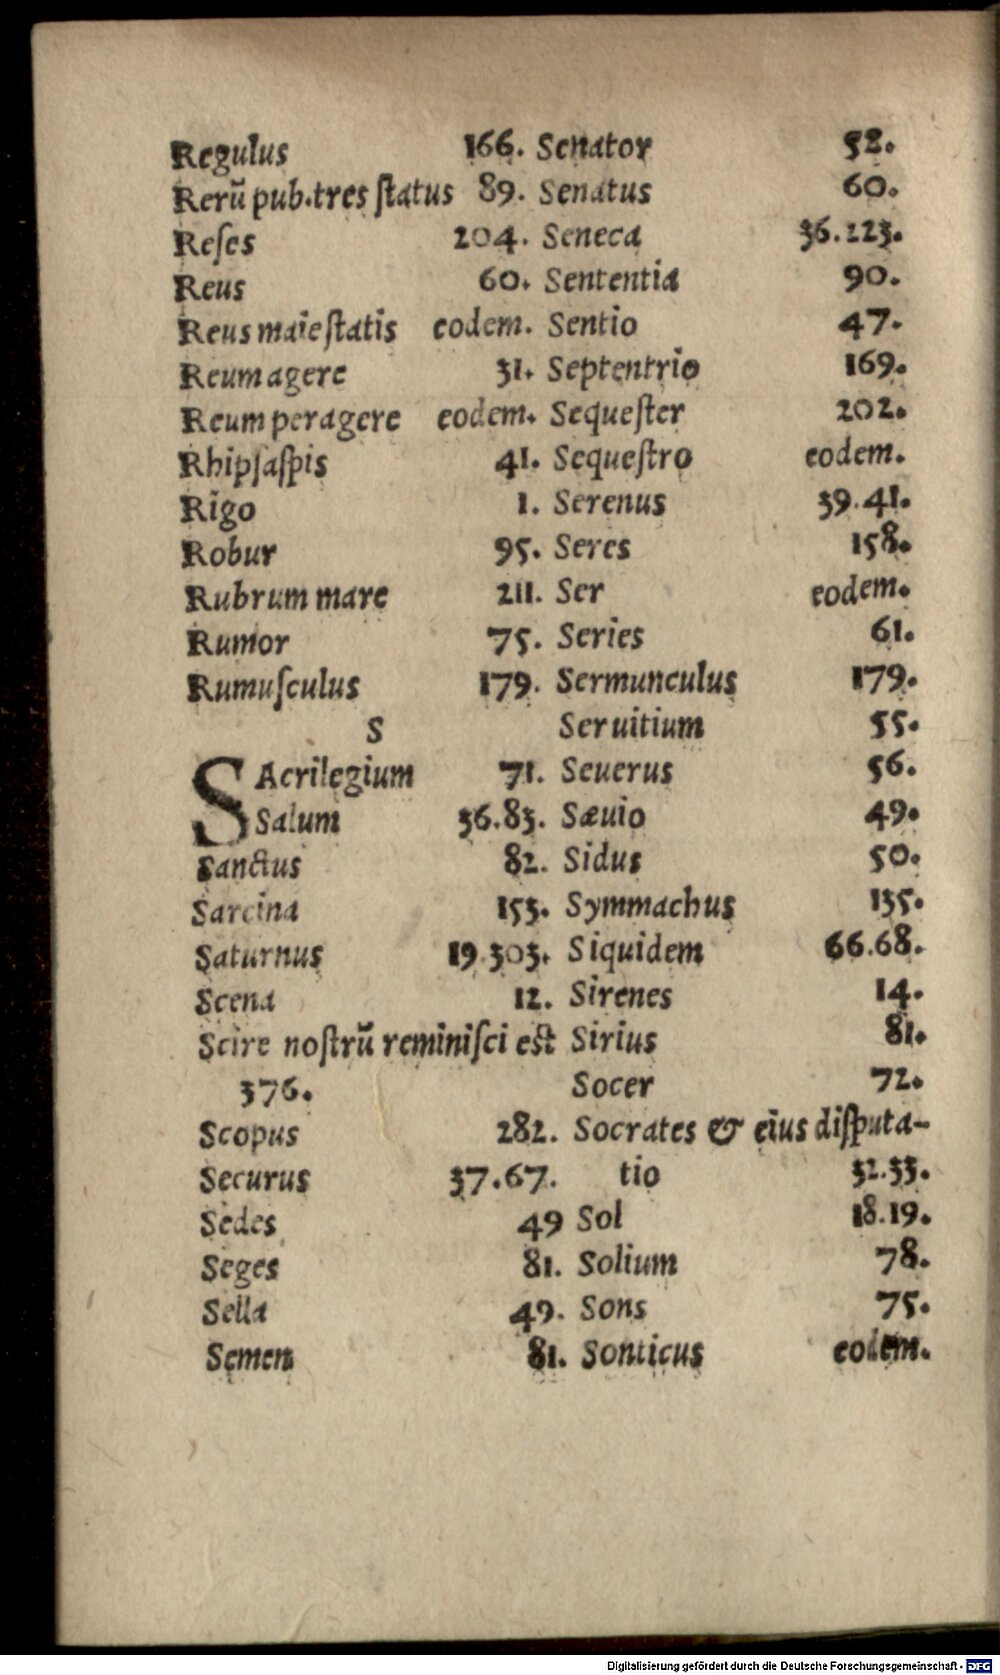 Regulus 166.
Rerũ pub.tres ſtatus 89.
Reſes 204.
Reus 60.
Reus maieſtatis eodem.
Reum agere 31.
Reum peragere eodem.
Rhipſaſpis 41.
Rigo 1.
Robur 95.
Rubrum mare 211.
Rumor 75.
Rumuſculus 179.
S
SAcrilegium 71.
Salum 36.83.
Sanctus 82.
Sarcina 153.
Saturnus 19.303.
Scena 12.
Scire noſtrũ reminiſci est
376.
Scopus 282.
Securus 37.67.
Sedes 49
Seges 81.
Sella 49.
Semen 81.
Senator 52.
Senatus 60.
Seneca 36.223.
Sententia 90.
Sentio 47.
Septentrio 169.
Sequeſter 202.
Sequeſtro eodem.
Serenus 39.41.
Seres 158.
Ser eodem.
Series 61.
Sermunculus 179.
Seruitium 55.
Seuerus 56.
Sæuio 49.
Sidus 50.
Symmachus 135.
Siquidem 66.68.
Sirenes 14.
Sirius 81.
Socer 72.
Socrates & eius diſputa-
tio 32.33.
Sol 18.19.
Solium 78.
Sons 75.
Sonticus eodem.
Digitalisierung gefördert durch die Deutsche Forschungsgemeinschaft - DFG